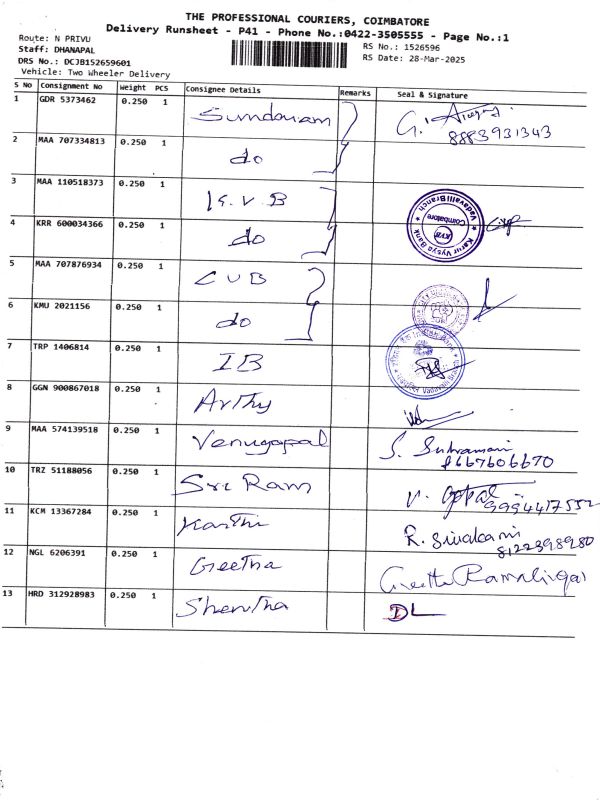 THE PROFESSIONAL COURIERS, COIMBATORE
Delivery Runsheet - P41 - Phone No.:0422-3505555 - Page No.:1
Route: N PRIVU
RS No.: 1526596
Staff: DHANAPAL
RS Date: 28-Mar-2025
DRS No.: DCJB152659601
Vehicle: Two Wheeler Delivery
S No Consignment No Weight PCS Consignee Details Remarks Seal & Signature
1 GDR 5373462 0.250 1 Sundaram G.
8883931343
2 MAA 707334813 0.250 1 do
3 MAA 110518373 0.250 1 K.V.B
Karur Vysya Bank
Vadavalli Branch
KVB
Coimbatore
4 KRR 600034366 0.250 1 do
5 MAA 707876934 0.250 1 CUB
6 KMU 2021156 0.250 1 do
7 TRP 1406814 0.250 1 IB
8 GGN 900867018 0.250 1 Arthy
9 MAA 574139518 0.250 1 Venugopal S. Subramani
8667606670
10 TRZ 51188056 0.250 1 Sri Ram V. Gopal
9994417552
11 KCM 13367284 0.250 1 Karthi R. Sivakami
8122398980
12 NGL 6206391 0.250 1 Geetha Geetha Ramalingam
13 HRD 312928983 0.250 1 Shentha DL